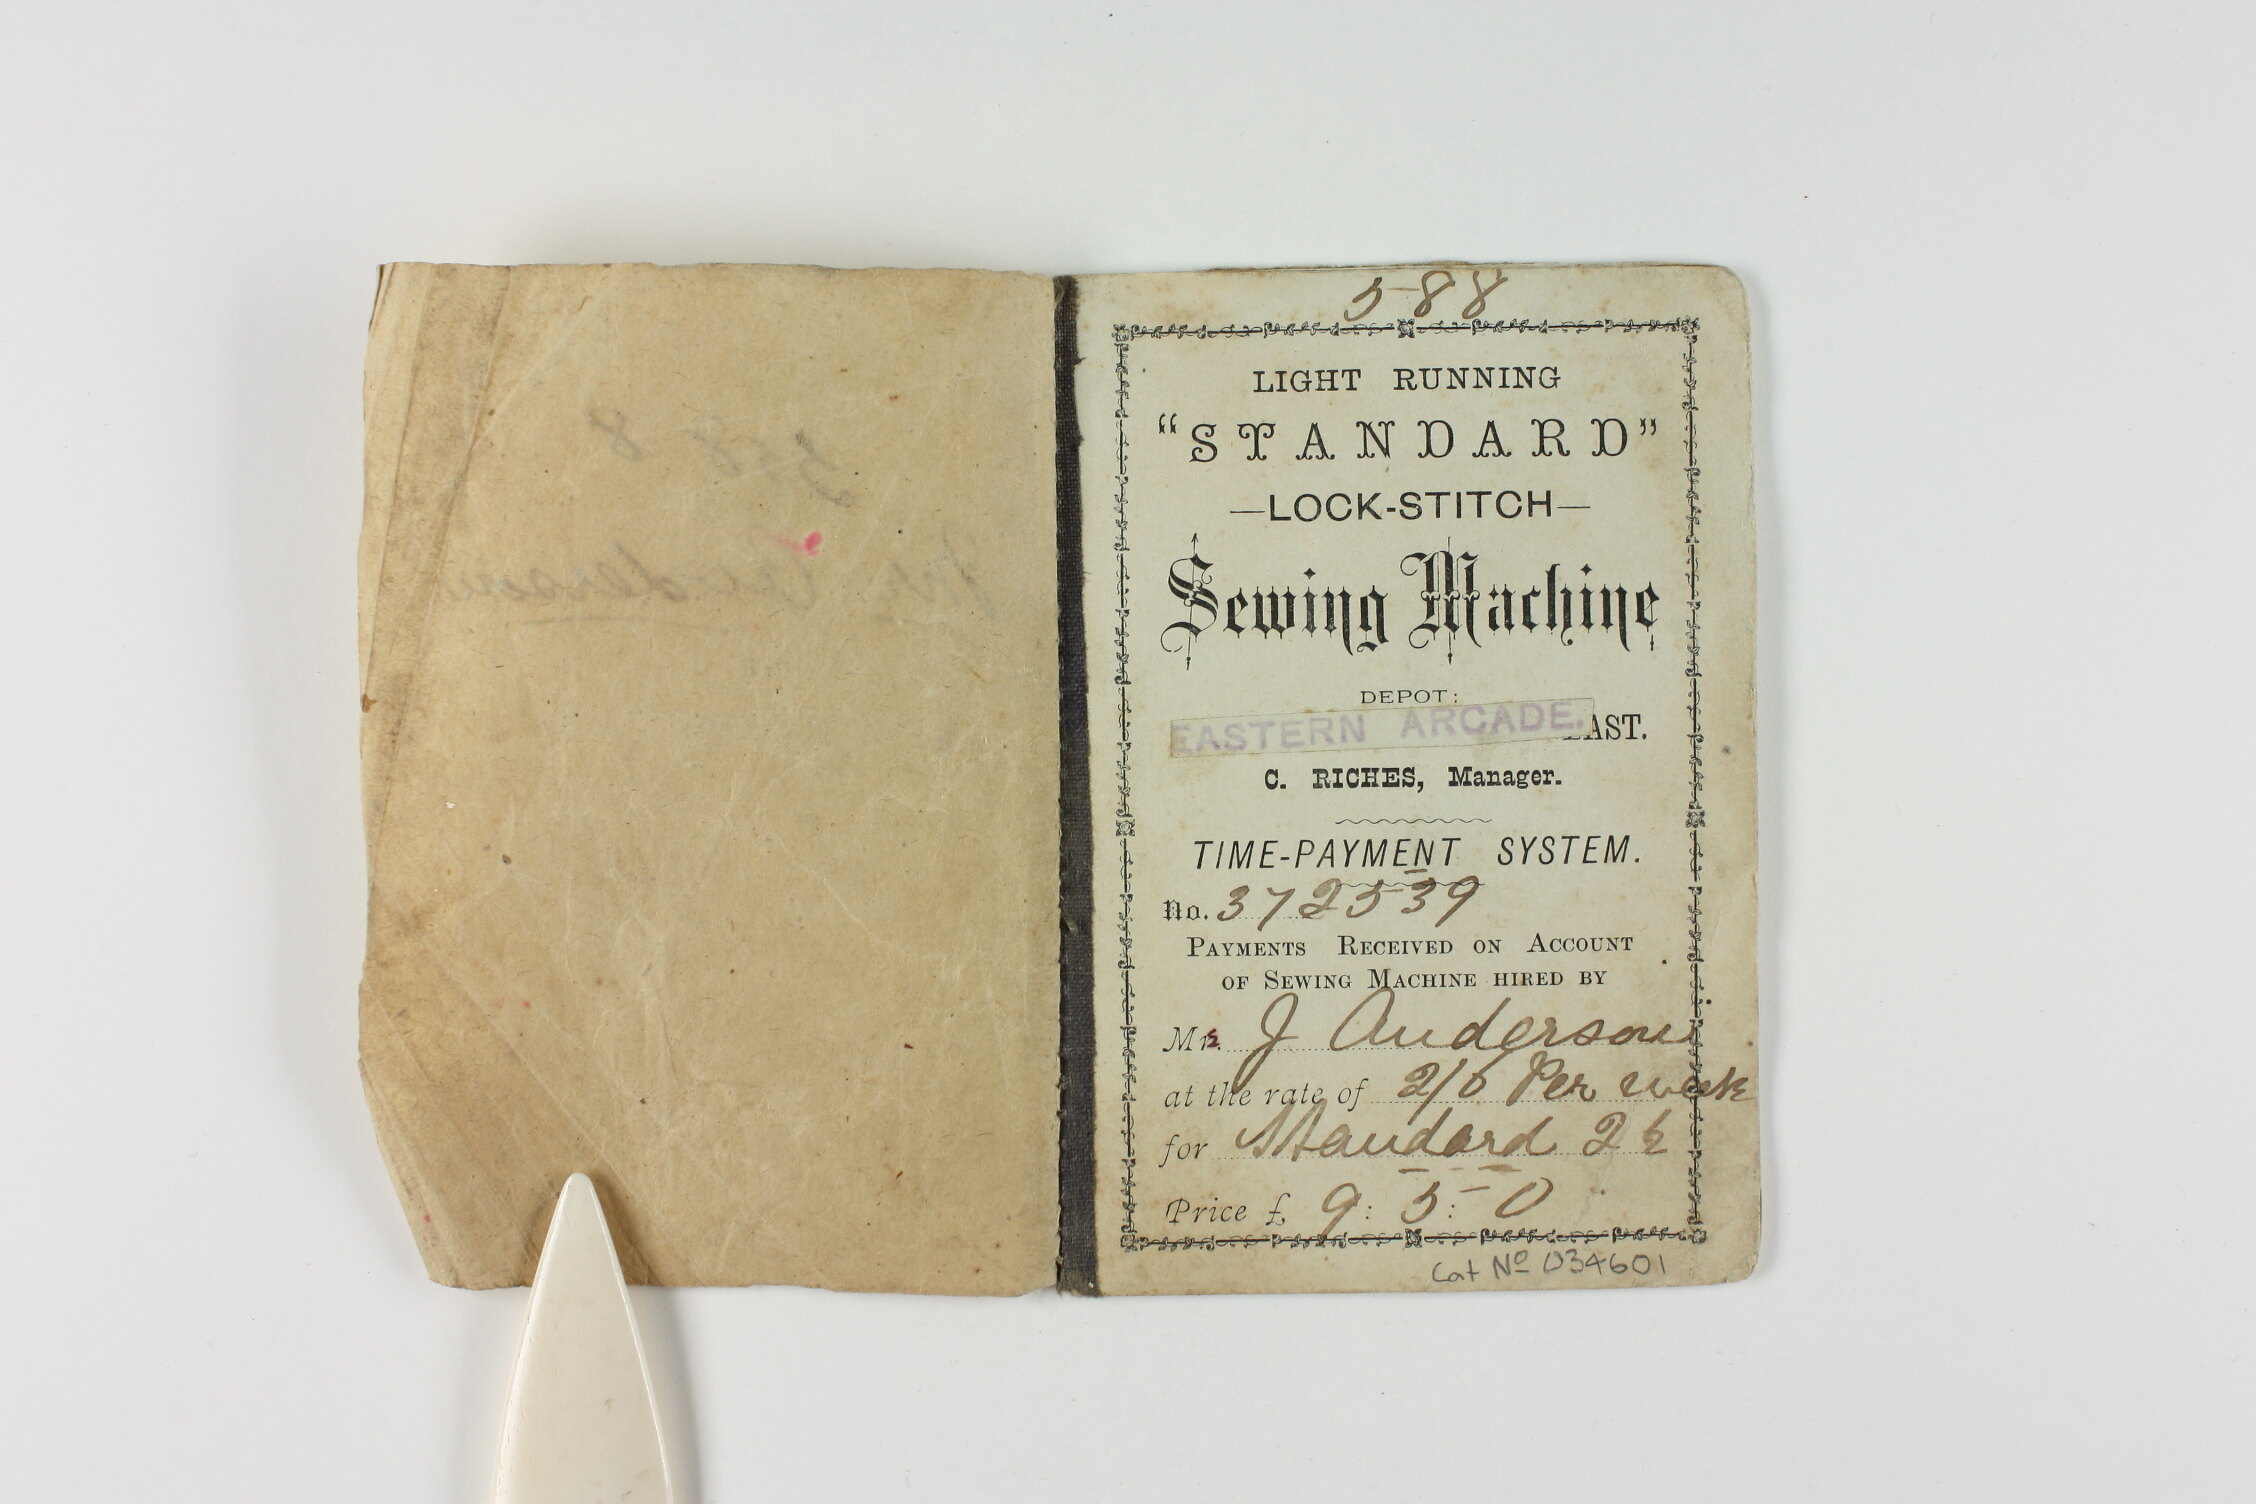 588
588
Mrs Anderson
LIGHT RUNNING
“STANDARD”
—LOCK-STITCH—
Sewing Machine
DEPOT:
EASTERN ARCADE. EAST.
C. RICHES, Manager.
TIME-PAYMENT SYSTEM.
No. 372539
PAYMENTS RECEIVED ON ACCOUNT
OF SEWING MACHINE HIRED BY
Mrs. J Anderson
at the rate of 2/6 Per week
for Standard 2½
Price £ 9: 5: 0
Cat Nº 034601